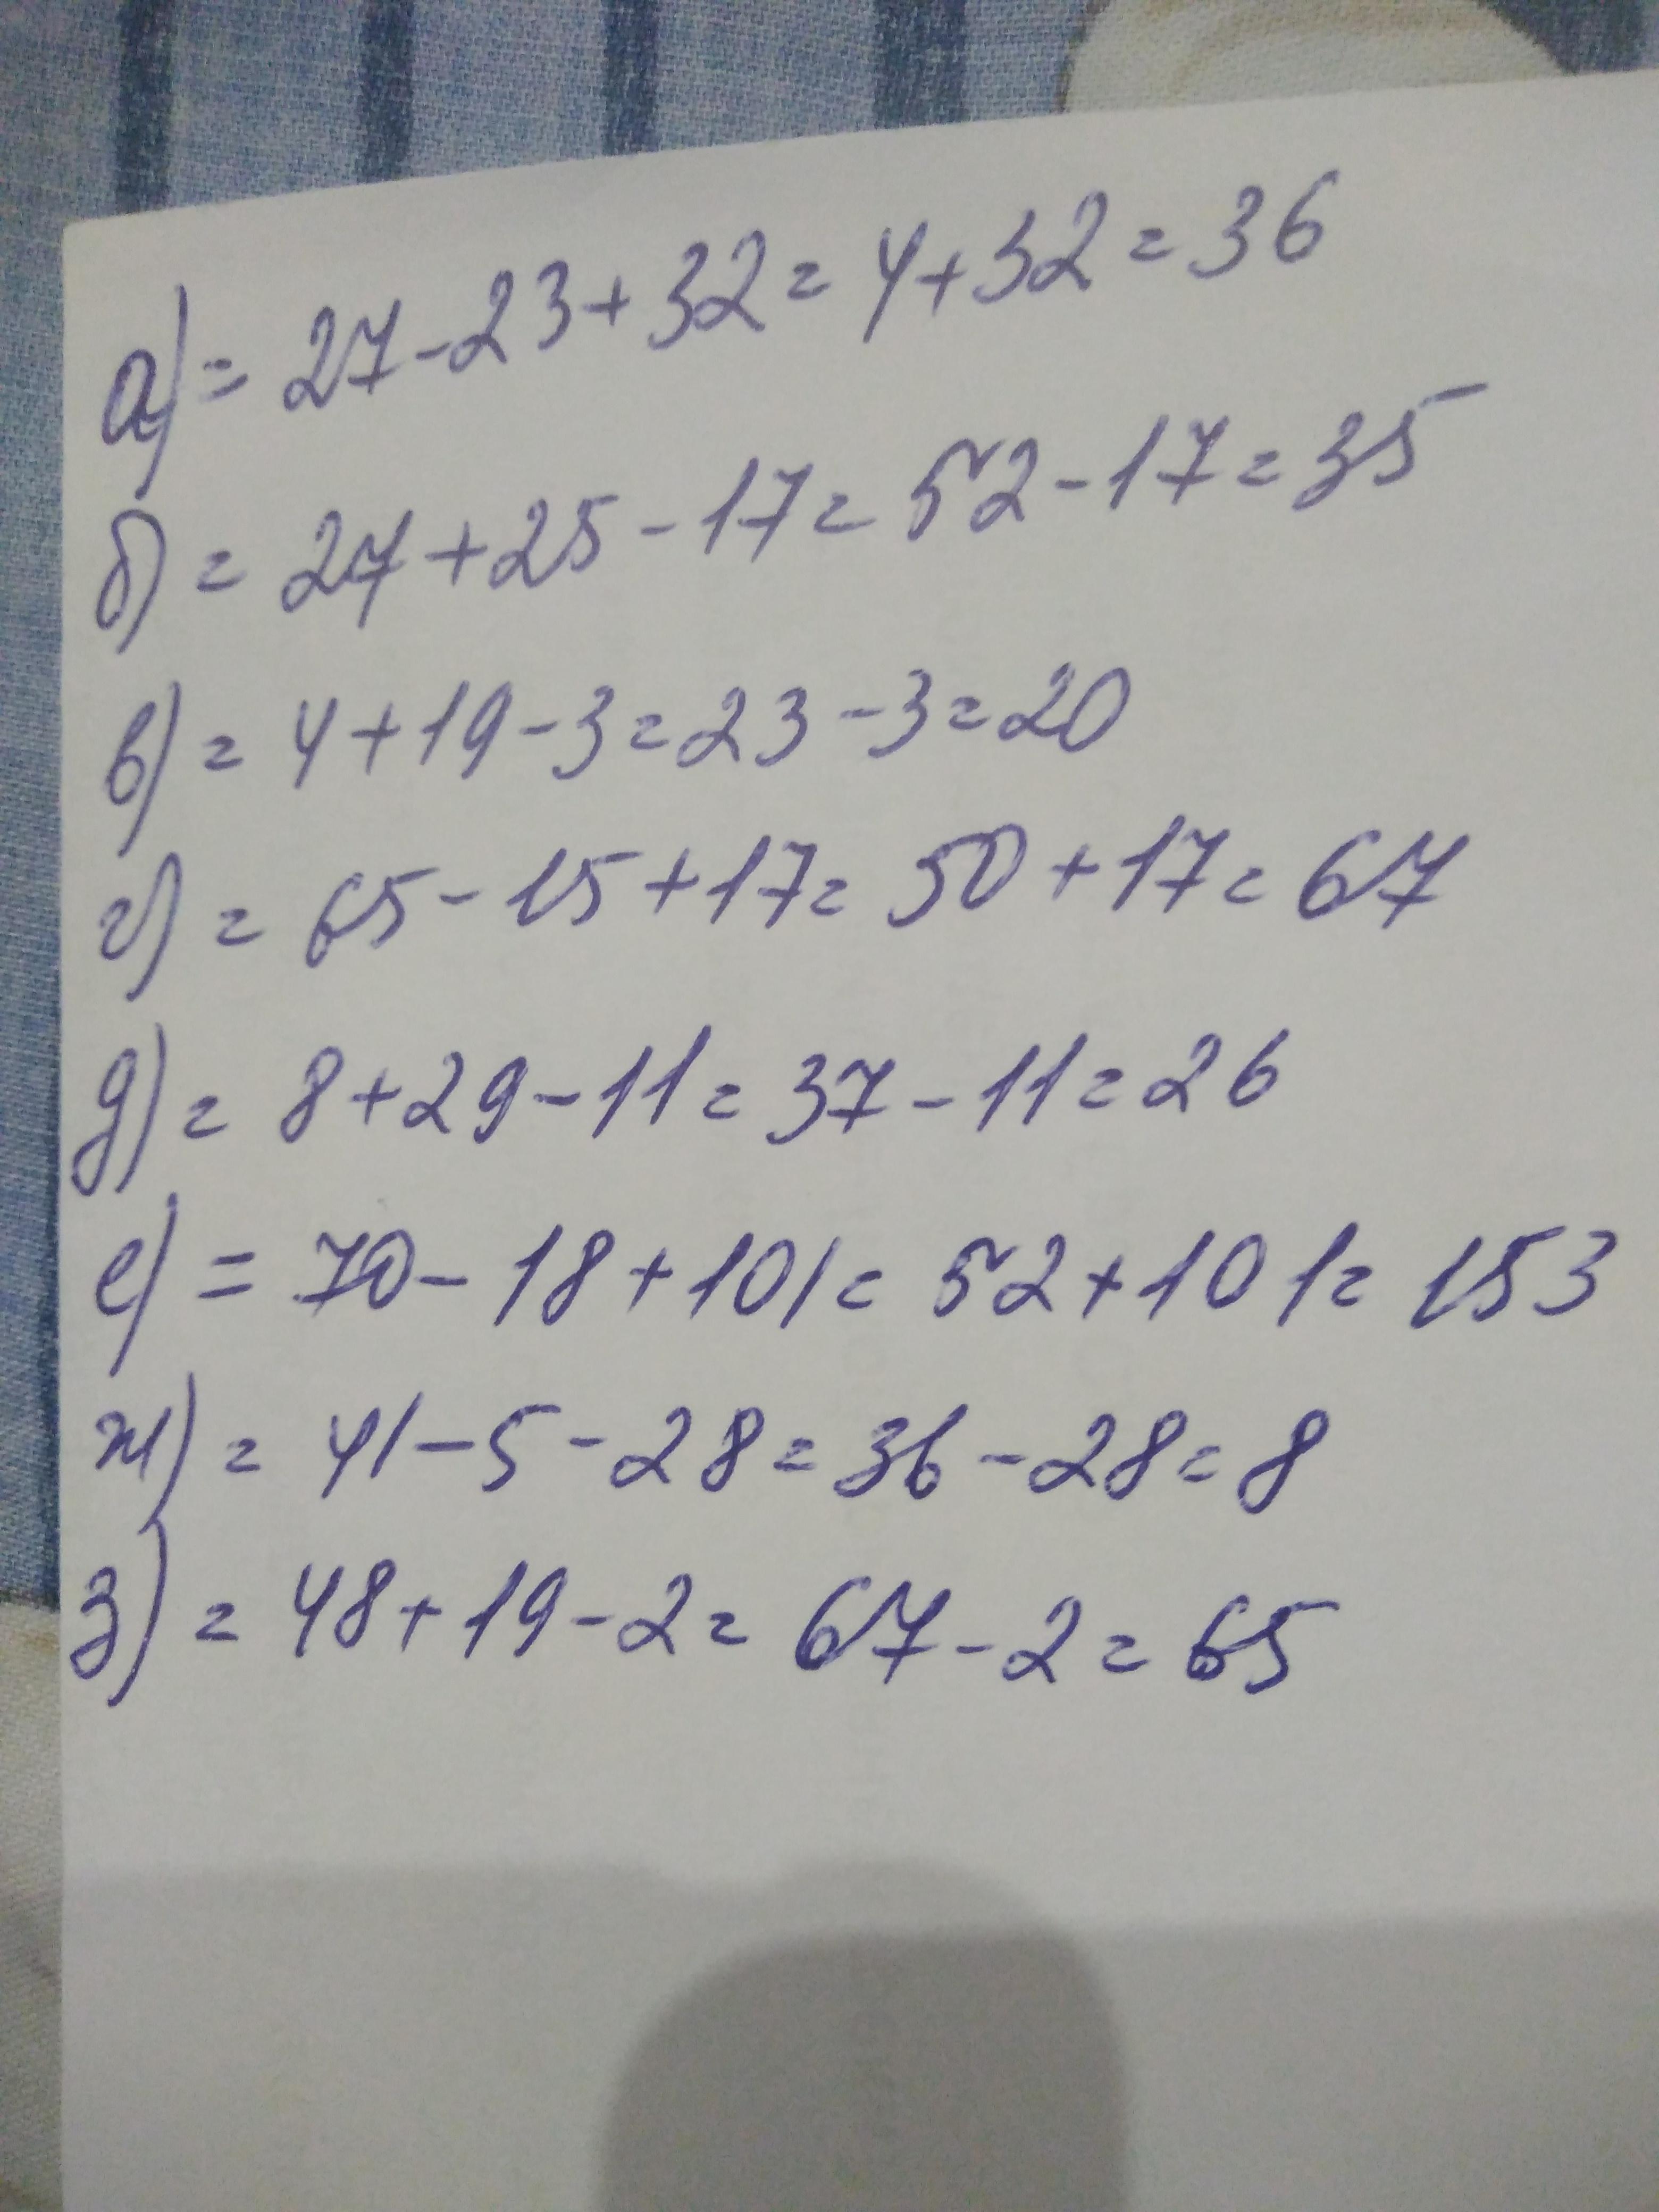 а) = 27-23+32=4+32=36
б) = 27+25-17=52-17=35
в) = 4+19-3=23-3=20
г) = 65-15+17=50+17=67
д) = 8+29-11=37-11=26
е) = 70-18+101=52+101=153
ж) = 41-5-28=36-28=8
з) = 48+19-2=67-2=65